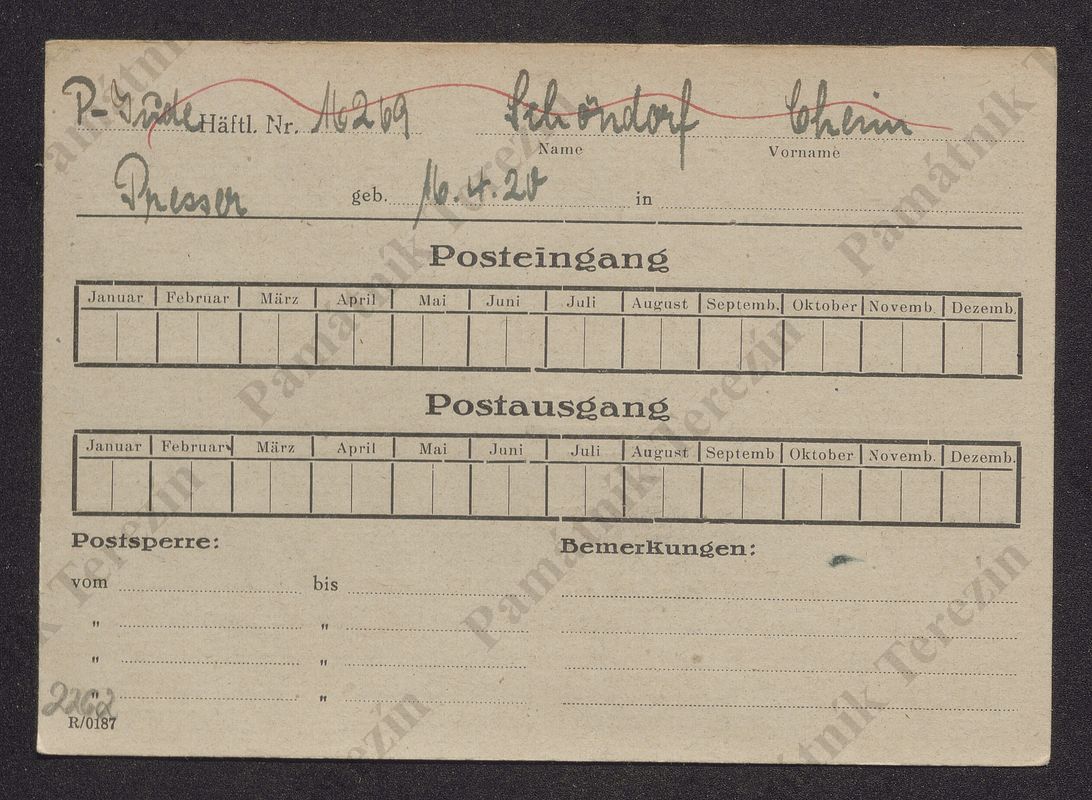 P-Jude Häftl. Nr. 16269 Schöndorf Cheim
Name Vorname
Presser geb. 16.4.20 in
Posteingang
Januar Februar März April Mai Juni Juli August Septemb. Oktober Novemb. Dezemb.
Postausgang
Januar Februar März April Mai Juni Juli August Septemb Oktober Novemb. Dezemb.
Postsperre: Bemerkungen:
vom bis
" "
" "
" "
2262
R/0187
Památník Terezín